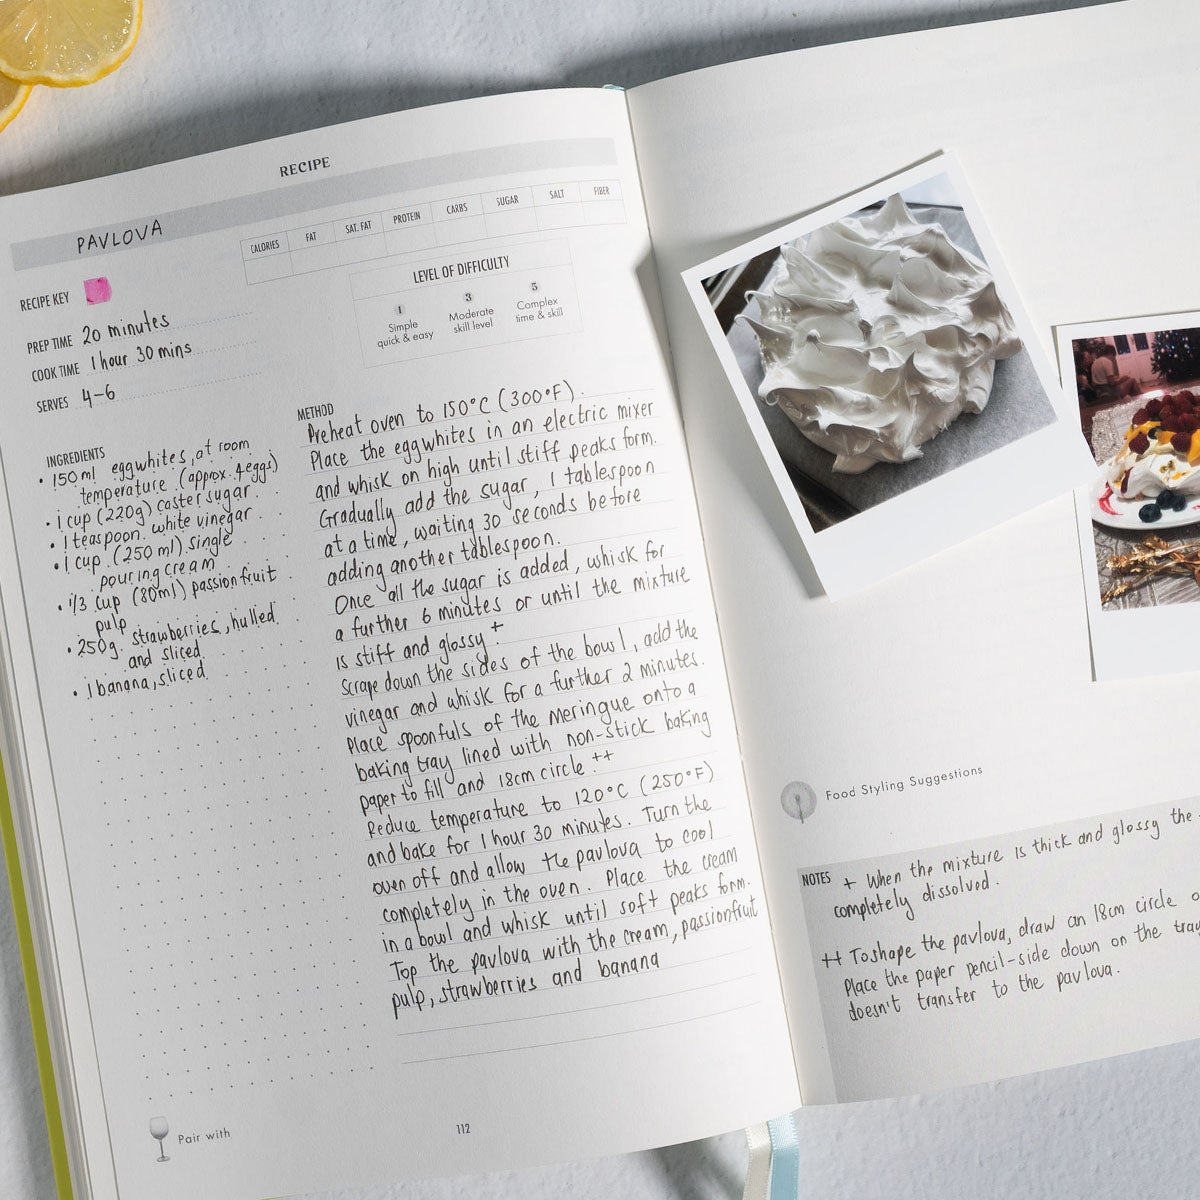 RECIPE
PAVLOVA
CALORIES FAT SAT. FAT PROTEIN CARBS SUGAR SALT FIBER
RECIPE KEY
LEVEL OF DIFFICULTY
1 3 5
Simple quick & easy
Moderate skill level
Complex time & skill
PREP TIME 20 minutes
COOK TIME 1 hour 30 mins
SERVES 4-6
INGREDIENTS
• 150ml eggwhites, at room
temperature (approx. 4 eggs)
• 1 cup (220g) caster sugar
• 1 teaspoon white vinegar
• 1 cup (250 ml) single
pouring cream
• 1/3 cup (80ml) passionfruit
pulp
• 250g strawberries, hulled
and sliced
• 1 banana, sliced
METHOD
Preheat oven to 150°C (300°F).
Place the eggwhites in an electric mixer
and whisk on high until stiff peaks form.
Gradually add the sugar, 1 tablespoon
at a time, waiting 30 seconds before
adding another tablespoon.
Once all the sugar is added, whisk for
a further 6 minutes or until the mixture
is stiff and glossy +
Scrape down the sides of the bowl, add the
vinegar and whisk for a further 2 minutes.
Place spoonfuls of the meringue onto a
baking tray lined with non-stick baking
paper to fill and 18cm circle ++
Reduce temperature to 120°C (250°F)
and bake for 1 hour 30 minutes. Turn the
oven off and allow the pavlova to cool
completely in the oven. Place the cream
in a bowl and whisk until soft peaks form.
Top the pavlova with the cream, passionfruit
pulp, strawberries and banana
Pair with
112
Food Styling Suggestions
NOTES + When the mixture is thick and glossy the
completely dissolved.
++ To shape the pavlova, draw an 18cm circle
Place the paper pencil-side down on the tray
doesn't transfer to the pavlova.